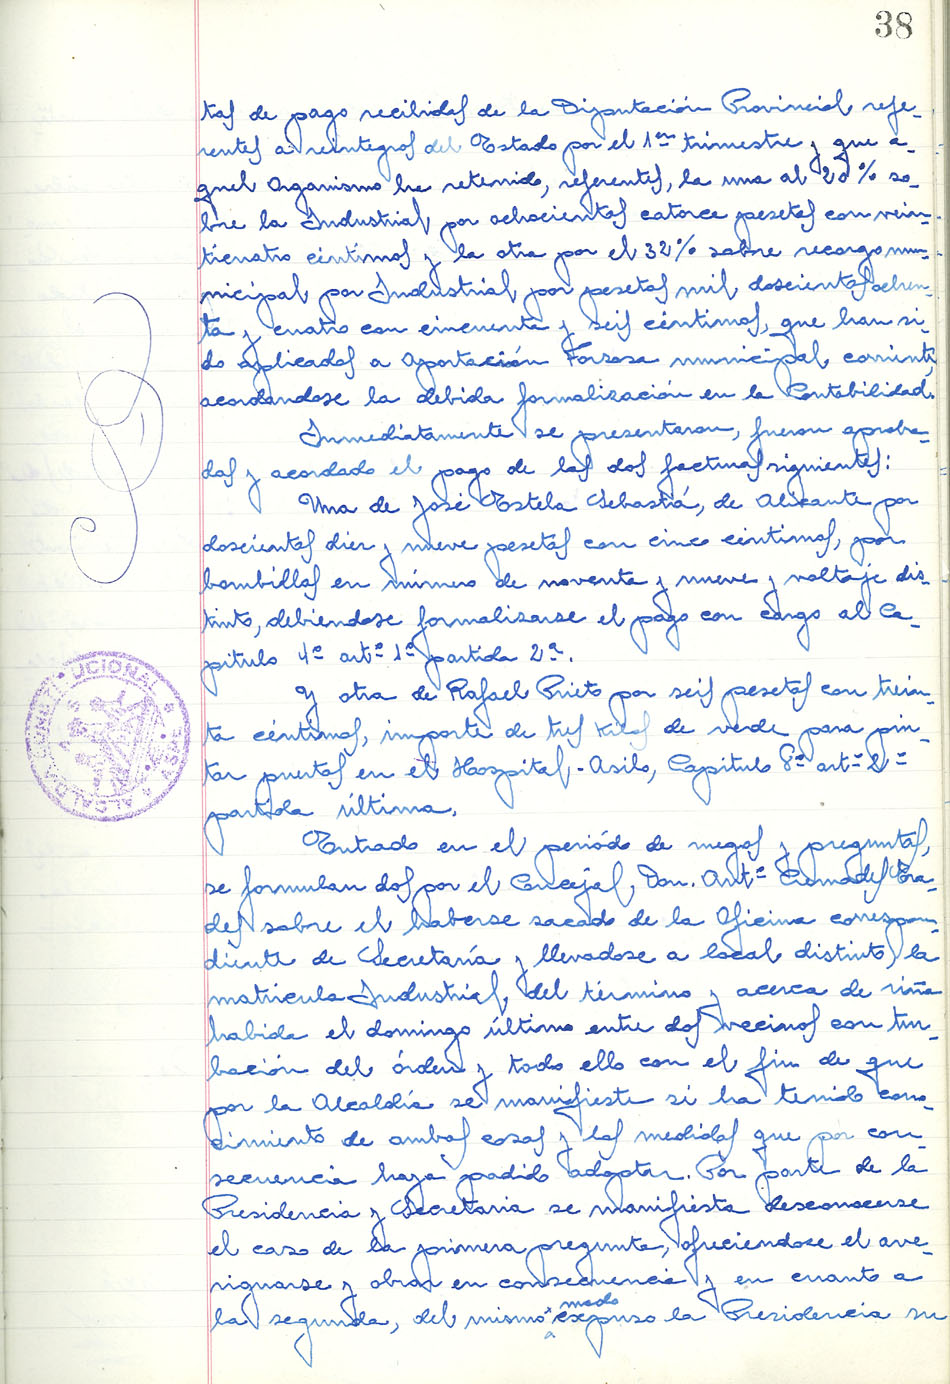 38
tas de pago recibidas de la Diputación Provincial refe-
rentes a reintegros del Estado por el 1er trimestre y que a-
quel Organismo ha retenido, referentes, la una al 20% so-
bre la Industrial por ochocientas catorce pesetas con vein-
ticuatro céntimos y la otra por el 32% sobre recargo mu-
nicipal por Industrial por pesetas mil doscientas ochen-
ta y cuatro con cincuenta y seis céntimos, que han si-
do aplicados a Aportación Forzosa municipal corriente,
acordandose la debida formalización en la Contabilidad.
Inmediatamente se presentaron, fueron aproba-
das y acordado el pago de las dos facturas siguientes:
Una de José Estela Sebastiá, de Alicante por
doscientas diez y nueve pesetas con cinco céntimos, por
bombillas en número de noventa y nueve y voltaje dis-
tinto, debiéndose formalizarse el pago con cargo al Ca-
pitulo 4º artº 1º partida 2ª.
Y otra de Rafael Prieto por seis pesetas con trein-
ta céntimos, importe de tres kilos de verde para pin-
tar puertas en el Hospital-Asilo, Capitulo 8º artº 2º
partida última.
Entrado en el periódo de ruegos y preguntas,
se formulan dos por el Concejal, Don. Antº Cremades Pra-
des sobre el haberse sacado de la Oficina correspon-
diente de Secretaría y llevadose a local distinto, la
matricula Industrial, del término y acerca de riña
habida el domingo último entre dos vecinos con tur-
bación del órden y todo ello con el fin de que
por la Alcaldía se manifieste si ha tenido cono-
cimiento de ambas cosas y las medidas que por con-
secuencia haya podido adoptar. Por parte de la
Presidencia y Secretaria se manifiesta desconocerse
el caso de la primera pregunta, ofreciendose el ave-
riguarse y obrar en consecuencia y en cuanto a
la segunda, del mismo modo expuso la Presidencia su
ALCALDIA CONSTITUCIONAL